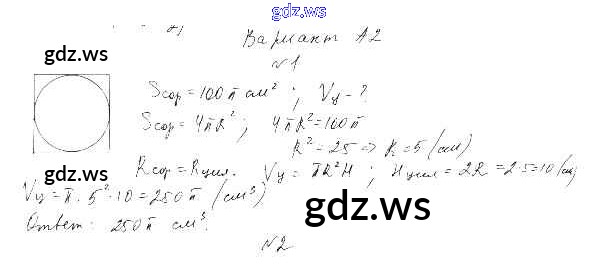 gdz.ws
Вариант А2
gdz.ws
№1
Sсф = 100π см² ; Vц - ?
Sсф = 4πR² ; 4πR² = 100π
R² = 25 => R = 5 (см)
gdz.ws
Rсф = Rцил. Vц = πR²H ; Hцил = 2R = 2·5 = 10 (см)
Vц = π · 5² · 10 = 250π (см³)
gdz.ws
Ответ: 250π см³.
№2